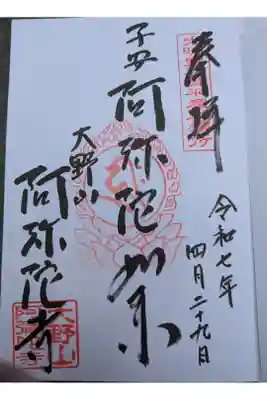 奉拝
令和七年
四月二十九日
子安阿弥陀如来
大野山
阿弥陀寺
大野山
阿弥陀寺